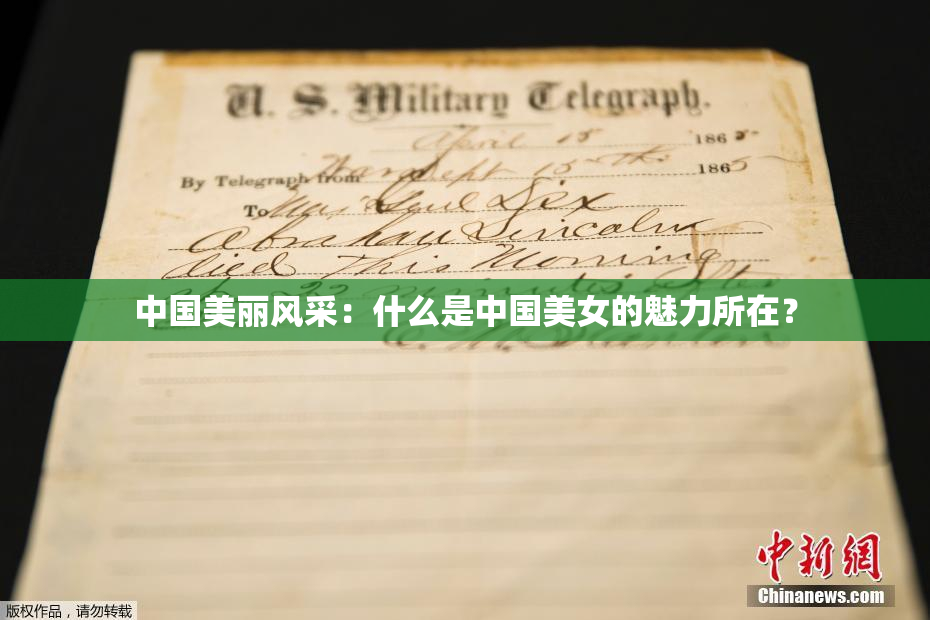 U. S. Military Telegraph.
April 15 1865
By Telegraph from War Dept 15th 1865
To Maj Genl Dix
Abraham Lincoln
died This Morning
at 22 minutes after
中国美丽风采：什么是中国美女的魅力所在？
E. M. Stanton
中新網
Chinanews.com
版权作品，请勿转载